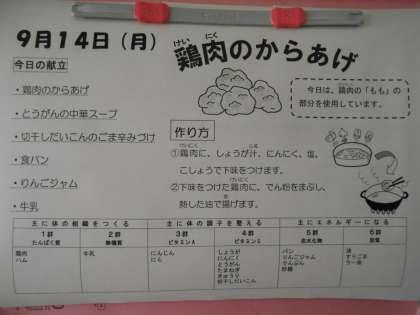 9月14日（月）
鶏肉のからあげ
けい にく
今日の献立
・鶏肉のからあげ
・とうがんの中華スープ
・切干しだいこんのごま辛みづけ
・食パン
・りんごジャム
・牛乳
今日は、鶏肉の「もも」の
部分を使用しています。
作り方
①鶏肉に、しょうが汁、にんにく、塩、
こしょうで下味をつけます。
②下味をつけた鶏肉に、でん粉をまぶし、
熱した油で揚げます。
主に体の組織をつくる
主に体の調子を整える
主にエネルギーになる
1群 2群 3群 4群 5群 6群
たんぱく質 無機質 ビタミンA ビタミンC 炭水化物 脂質
鶏肉
ハム
牛乳
にんじん
にら
しょうが
にんにく
とうがん
たまねぎ
きゅうり
切干しだいこん
パン
りんごジャム
でんぷん
砂糖
油
すりごま
ラー油